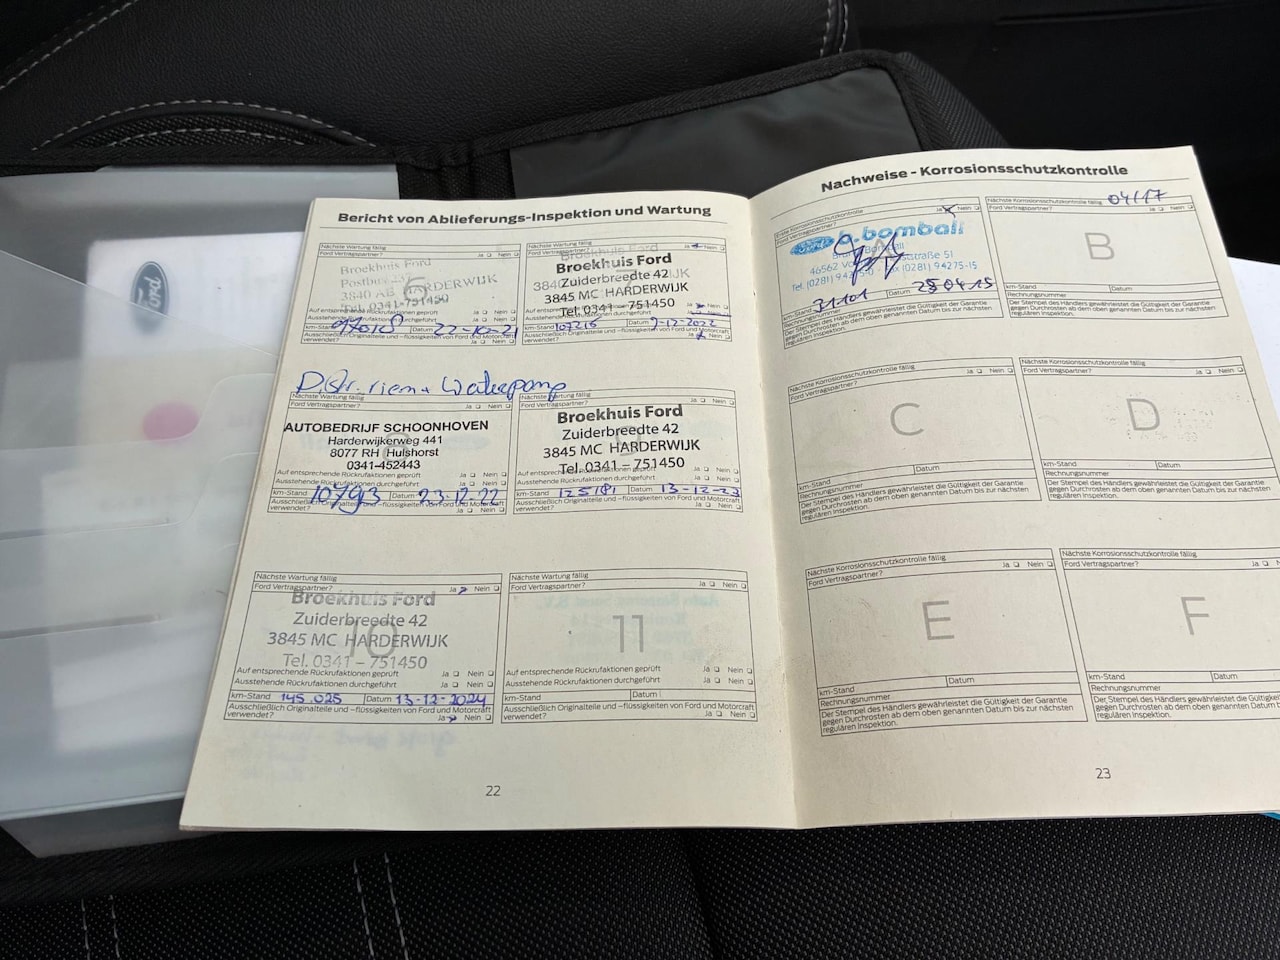 Ford
Bericht von Ablieferungs-Inspektion und Wartung
Nächste Wartung fällig
Ford Vertragspartner? Ja Nein
Broekhuis Ford
3840 AB HARDERWIJK
Tel. 0341-751450
Auf entsprechende Rückrufaktionen geprüft Ja Nein
Ausstehende Rückrufaktionen durchgeführt Ja Nein
km-Stand Datum 22-10-21
Ausschließlich Originalteile und –flüssigkeiten von Ford und Motorcraft
verwendet? Ja Nein
Nächste Wartung fällig Ja Nein
Ford Vertragspartner?
Broekhuis Ford
Zuiderbreedte 42
3845 MC HARDERWIJK
Tel. 0341 – 751450
Auf entsprechende Rückrufaktionen geprüft Ja Nein
Ausstehende Rückrufaktionen durchgeführt Ja Nein
km-Stand 107215 Datum 9-12-2022
Ausschließlich Originalteile und –flüssigkeiten von Ford und Motorcraft
verwendet? Ja Nein
Distr. riem + Waterpomp
Nächste Wartung fällig
Ford Vertragspartner? Ja Nein
AUTOBEDRIJF SCHOONHOVEN
Harderwijkerweg 441
8077 RH Hulshorst
0341-452443
Auf entsprechende Rückrufaktionen geprüft Ja Nein
Ausstehende Rückrufaktionen durchgeführt Ja Nein
km-Stand 107913 Datum 23-12-22
Ausschließlich Originalteile und –flüssigkeiten von Ford und Motorcraft
verwendet? Ja Nein
Nächste Wartung fällig
Ford Vertragspartner? Ja Nein
Broekhuis Ford
Zuiderbreedte 42
3845 MC HARDERWIJK
Tel. 0341 – 751450
Auf entsprechende Rückrufaktionen geprüft Ja Nein
Ausstehende Rückrufaktionen durchgeführt Ja Nein
km-Stand Datum 13-12-23
Ausschließlich Originalteile und –flüssigkeiten von Ford und Motorcraft
verwendet? Ja Nein
Nächste Wartung fällig
Ford Vertragspartner? Ja Nein
Broekhuis Ford
Zuiderbreedte 42
3845 MC HARDERWIJK
Tel. 0341 – 751450
10
Auf entsprechende Rückrufaktionen geprüft Ja Nein
Ausstehende Rückrufaktionen durchgeführt Ja Nein
km-Stand 145.025 Datum 13-12-2024
Ausschließlich Originalteile und –flüssigkeiten von Ford und Motorcraft
verwendet? Ja Nein
Nächste Wartung fällig
Ford Vertragspartner? Ja Nein
11
Auf entsprechende Rückrufaktionen geprüft Ja Nein
Ausstehende Rückrufaktionen durchgeführt Ja Nein
km-Stand Datum
Ausschließlich Originalteile und –flüssigkeiten von Ford und Motorcraft
verwendet? Ja Nein
22
Nachweise - Korrosionsschutzkontrolle
Erste Korrosionsschutzkontrolle Ja Nein
Ford Vertragspartner?
bomball
46562
Tel. (0281) Fax (0281) 94275-15
km-Stand 31101 Datum
Rechnungsnummer
Der Stempel des Händlers gewährleistet die Gültigkeit der Garantie
gegen Durchrosten ab dem oben genannten Datum bis zur nächsten
regulären Inspektion.
Nächste Korrosionsschutzkontrolle fällig 04/17
Ford Vertragspartner? Ja Nein
B
km-Stand Datum
Rechnungsnummer
Der Stempel des Händlers gewährleistet die Gültigkeit der Garantie
gegen Durchrosten ab dem oben genannten Datum bis zur nächsten
regulären Inspektion.
Nächste Korrosionsschutzkontrolle fällig
Ford Vertragspartner? Ja Nein
C
km-Stand Datum
Rechnungsnummer
Der Stempel des Händlers gewährleistet die Gültigkeit der Garantie
gegen Durchrosten ab dem oben genannten Datum bis zur nächsten
regulären Inspektion.
Nächste Korrosionsschutzkontrolle fällig
Ford Vertragspartner? Ja Nein
D
km-Stand Datum
Rechnungsnummer
Der Stempel des Händlers gewährleistet die Gültigkeit der Garantie
gegen Durchrosten ab dem oben genannten Datum bis zur nächsten
regulären Inspektion.
Nächste Korrosionsschutzkontrolle fällig
Ford Vertragspartner? Ja Nein
E
km-Stand Datum
Rechnungsnummer
Der Stempel des Händlers gewährleistet die Gültigkeit der Garantie
gegen Durchrosten ab dem oben genannten Datum bis zur nächsten
regulären Inspektion.
Nächste Korrosionsschutzkontrolle fällig
Ford Vertragspartner? Ja
F
km-Stand Datum
Rechnungsnummer
Der Stempel des Händlers gewährleistet die Gültigkeit der Garantie
gegen Durchrosten ab dem oben genannten Datum bis zur nächsten
regulären Inspektion.
23